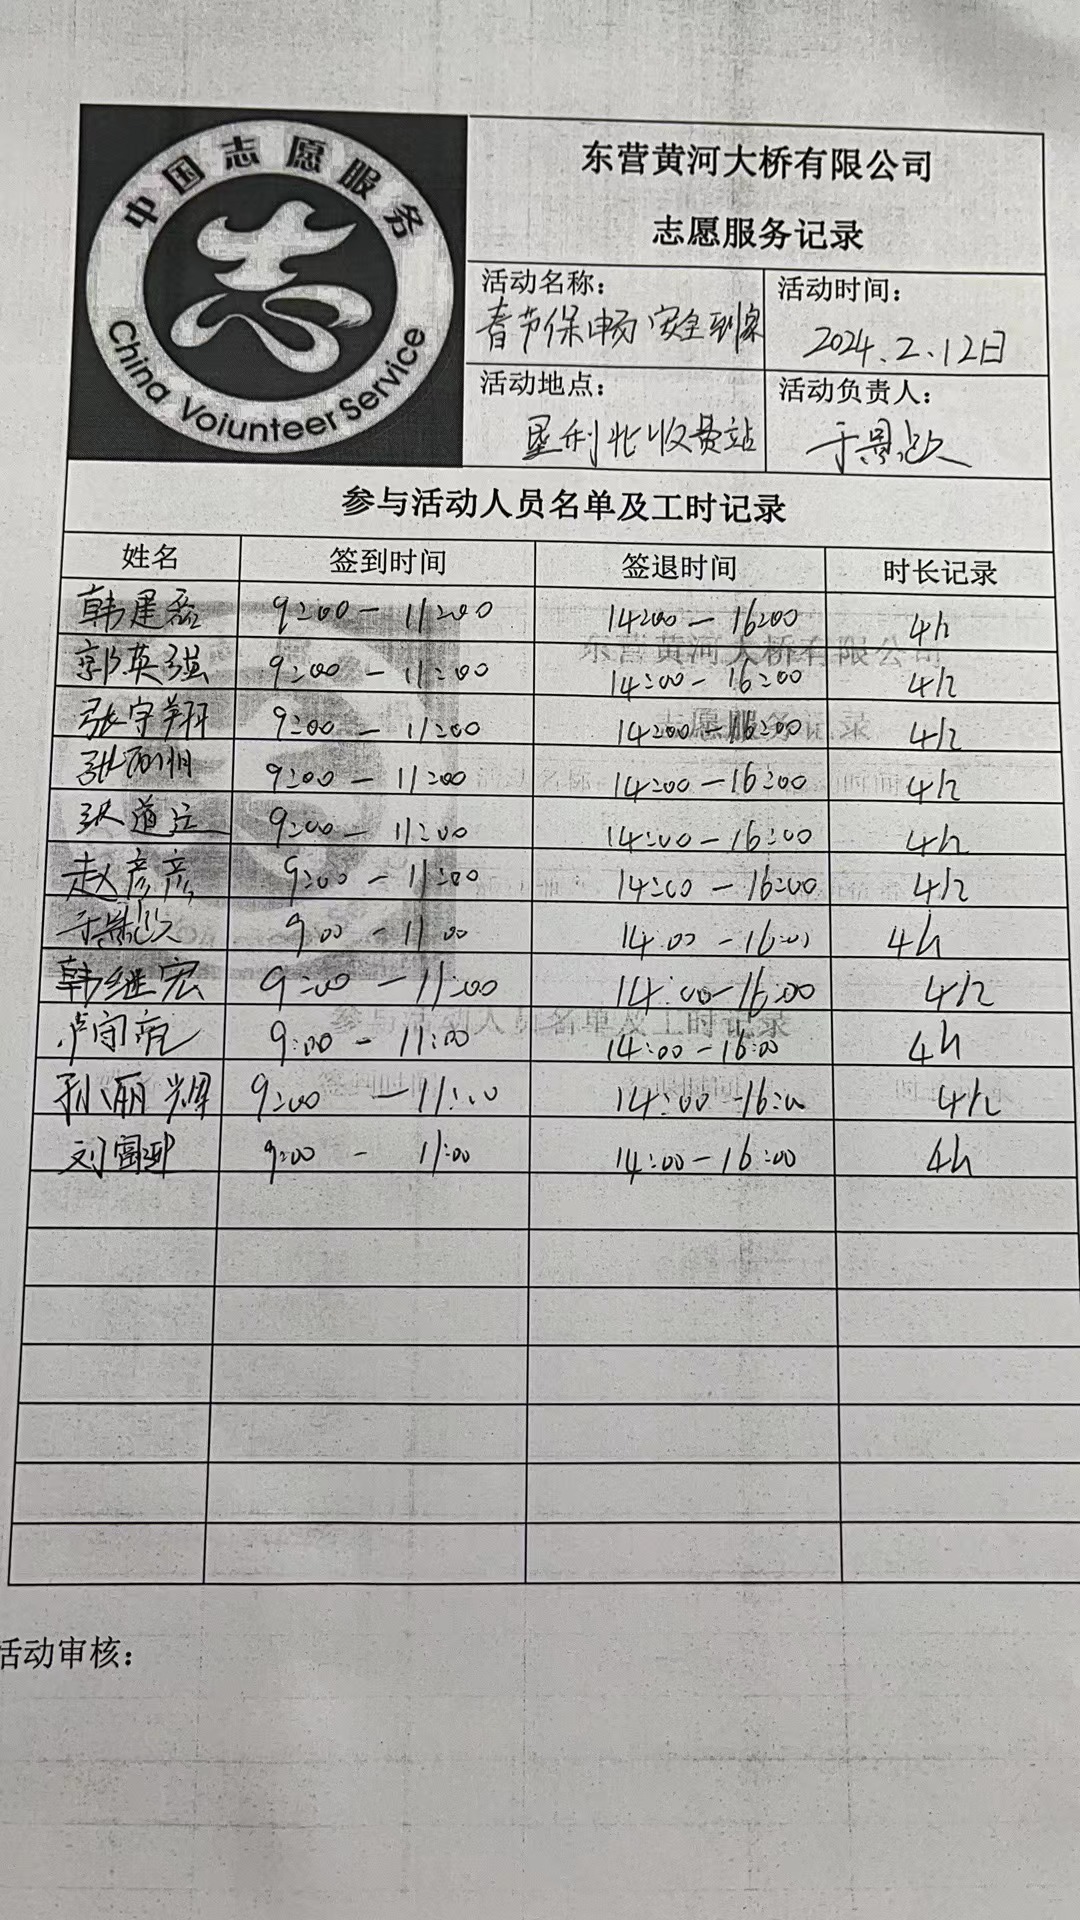 中国志愿服务
China Voiunteer Service
东营黄河大桥有限公司
志愿服务记录
活动名称：
春节保畅 安全到家
活动时间：
2024.2.12日
活动地点：
垦利北收费站
活动负责人：
于景
参与活动人员名单及工时记录
姓名 签到时间 签退时间 时长记录
韩建磊 9:00-11:00 14:00-16:00 4h
郭英强 9:00-11:00 14:00-16:00 4h
张守翔 9:00-11:00 14:00-16:00 4h
张 9:00-11:00 14:00-16:00 4h
张道 9:00-11:00 14:00-16:00 4h
赵彦彦 9:00-11:00 14:00-16:00 4h
于景 9:00-11:00 14:00-16:00 4h
韩继宏 9:00-11:00 14:00-16:00 4h
卢 9:00-11:00 14:00-16:00 4h
孙丽辉 9:00-11:00 14:00-16:00 4h
刘 9:00-11:00 14:00-16:00 4h
活动审核：